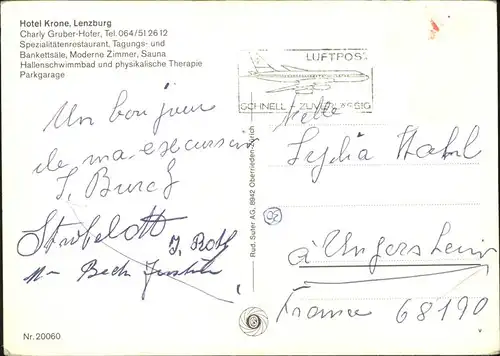 Hotel Krone, Lenzburg
Charly Gruber-Hofer, Tel. 064/51 26 12
Spezialitätenrestaurant, Tagungs- und
Bankettsäle, Moderne Zimmer, Sauna
Hallenschwimmbad und physikalische Therapie
Parkgarage
LUFTPOS
SCHNELL - ZUV
Un bonjour
de ma excursion
J. Burch
J. Roth
Rud. Suter AG, 8942 Oberrieden-Zürich
Melle
Lydia
à Ungersheim
France 68190
Nr. 20060